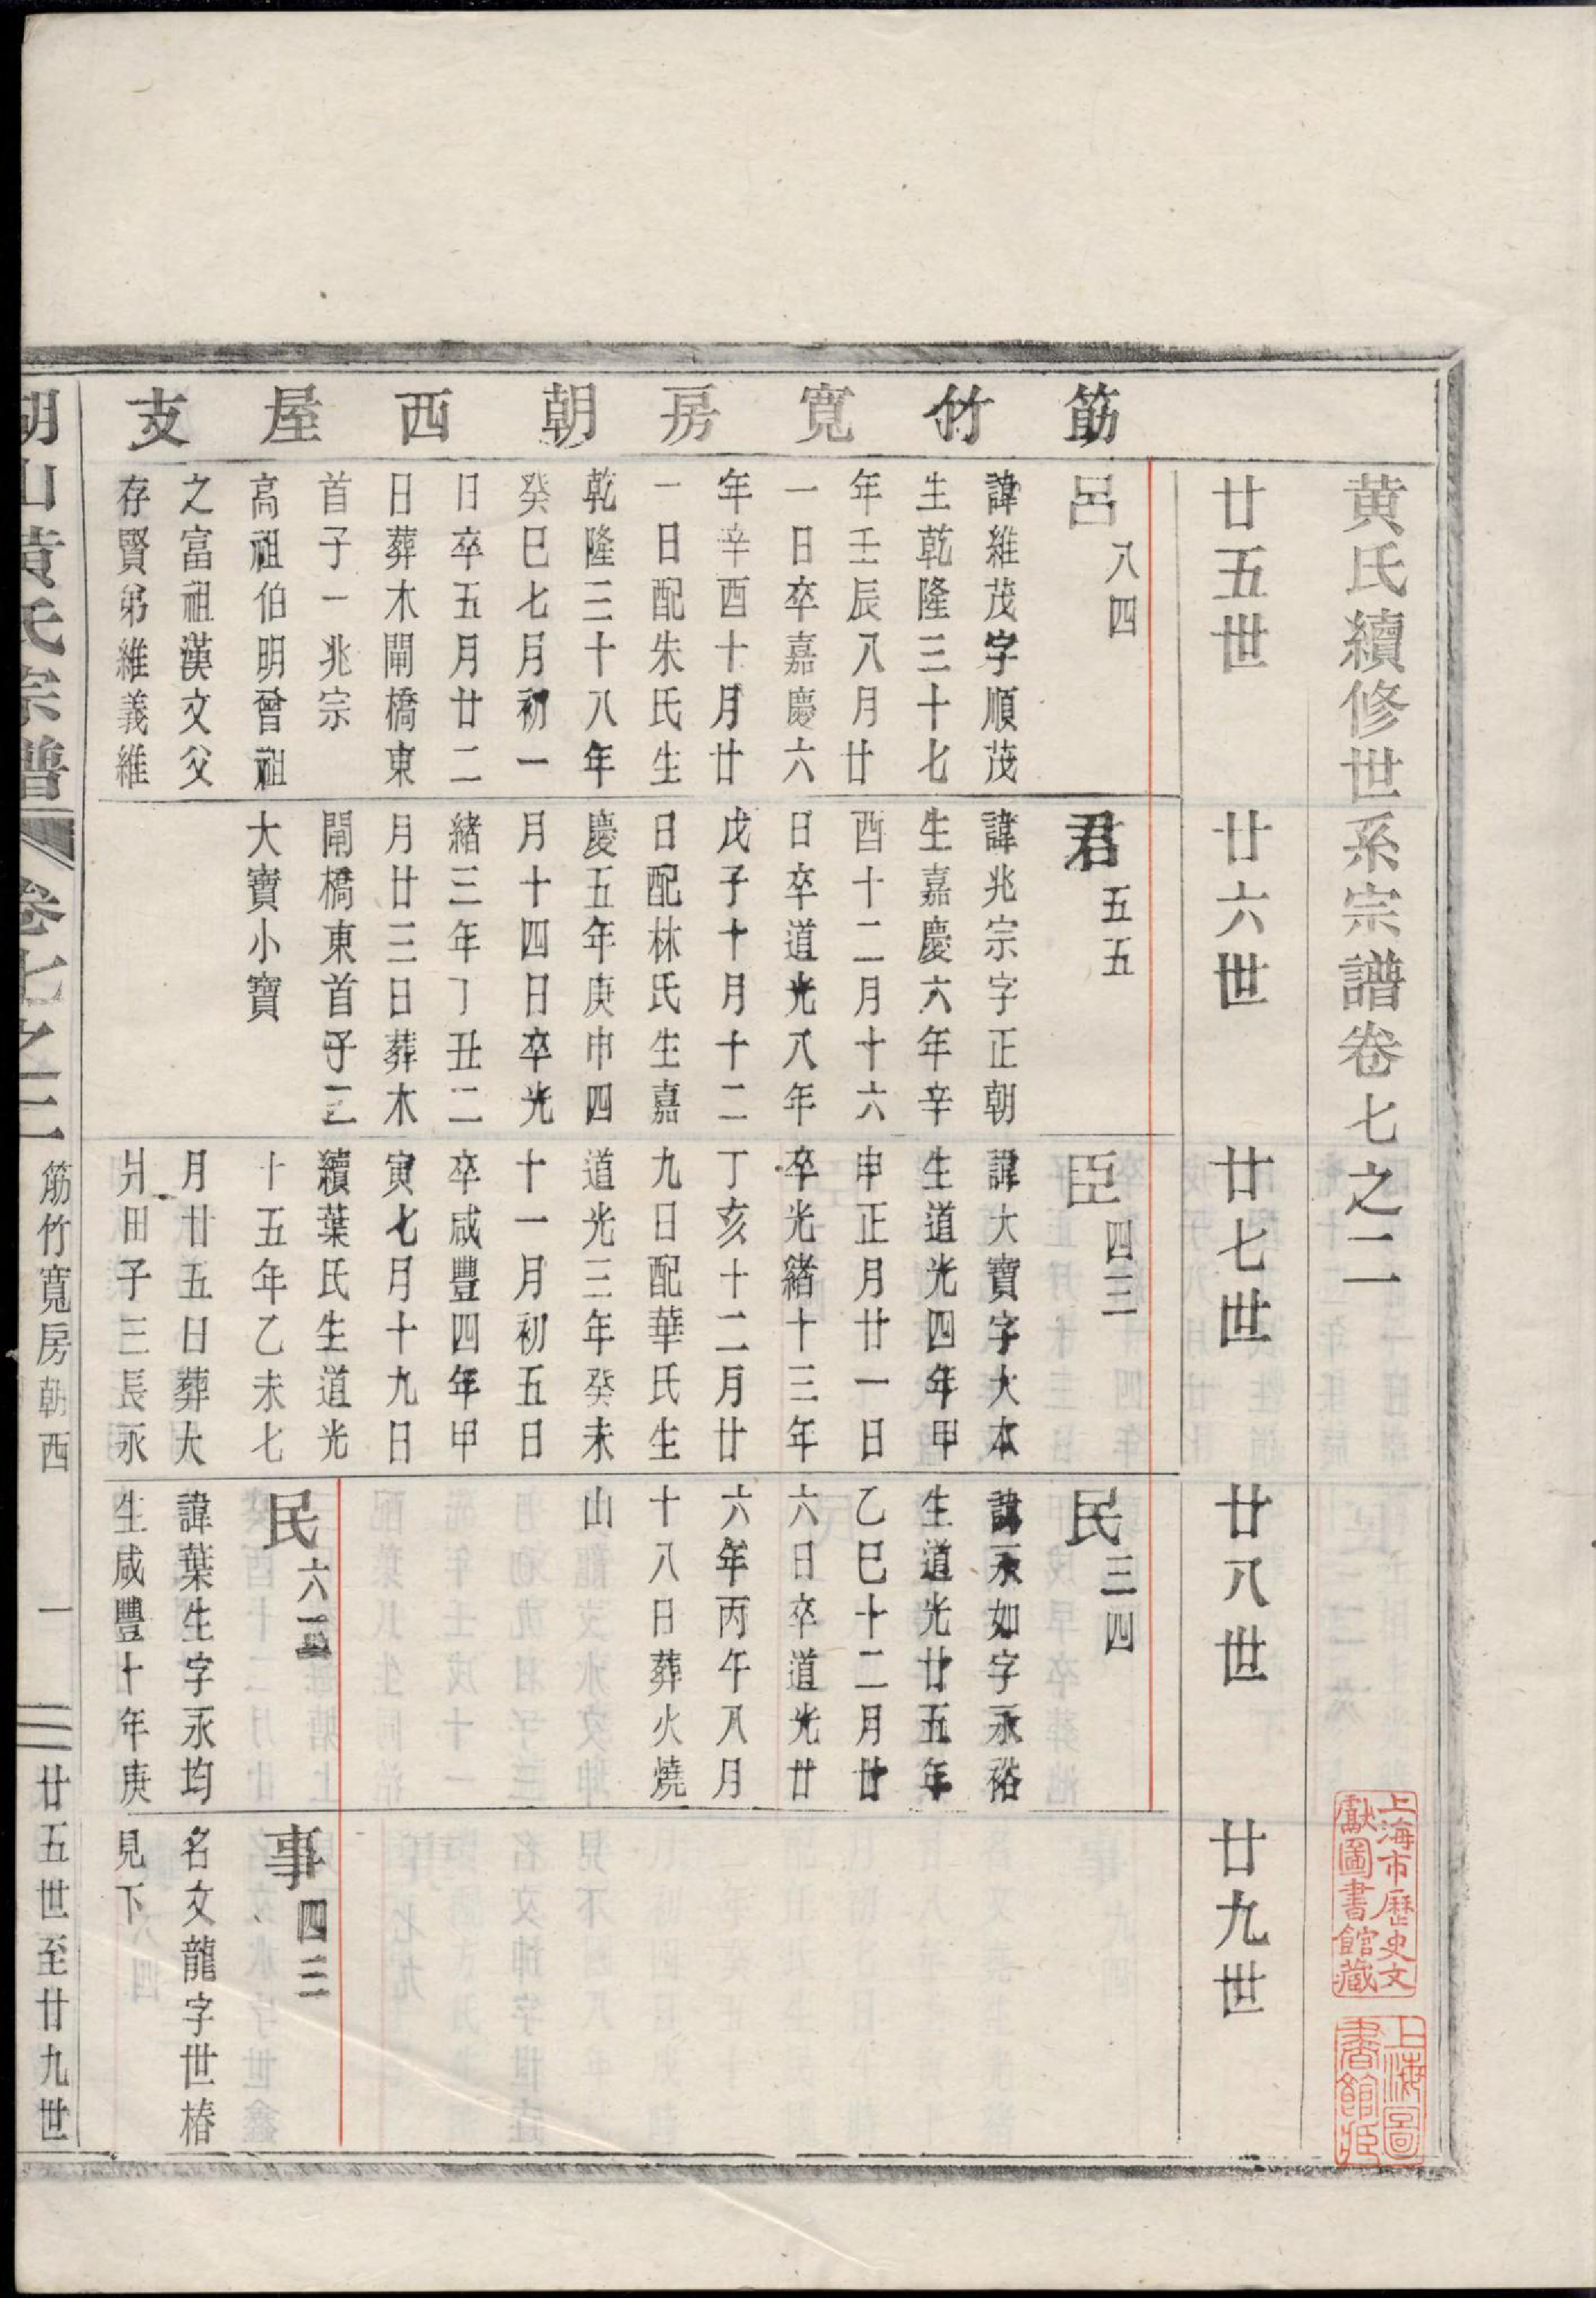 黄氏續修世系宗譜卷七之二
上海市歷史文獻圖書館藏
上海圖書館藏
廿五世
廿六世
廿七世
廿八世
廿九世
筋竹寬房朝西屋支
呂八四
諱維茂字順茂
生乾隆三十七
年壬辰八月廿
一日卒嘉慶六
年辛酉十月廿
一日配朱氏生
乾隆三十八年
癸巳七月初一
日卒五月廿二
日葬木閘橋東
首子一兆宗
高祖伯明曾祖
之富祖漢文父
存賢弟維義維
君五五
諱兆宗字正朝
生嘉慶六年辛
酉十二月十六
日卒道光八年
戊子十月十二
日配林氏生嘉
慶五年庚申四
月十四日卒光
緒三年丁丑二
月廿三日葬木
閘橋東首子二
大寶小寶
臣四三
諱大寶字大本
生道光四年甲
申正月廿一日
卒光緒十三年
丁亥十二月廿
九日配華氏生
道光三年癸未
十一月初五日
卒咸豐四年甲
寅七月十九日
續葉氏生道光
十五年乙未七
月廿五日葬大
爿田子三長永
民三四
諱永如字永裕
生道光廿五年
乙巳十二月廿
六日卒道光廿
六年丙午八月
十八日葬火燒
山
民六
諱葉生字永均
生咸豐十年庚
事四三
名文龍字世椿
見下
湖山黃氏宗譜 卷七之二 筋竹寬房朝西 一 廿五世至廿九世